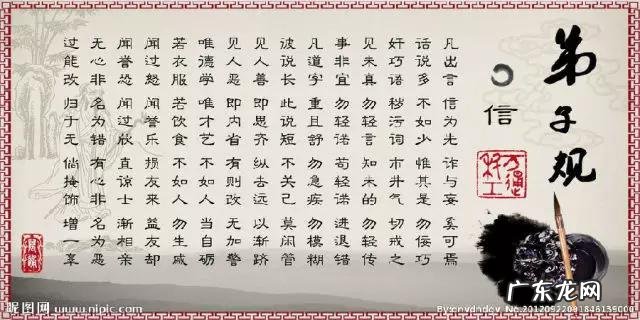 弟子规
信
凡出言 信为先 诈与妄 奚可焉
话说多 不如少 惟其是 勿佞巧
奸巧语 秽污词 市井气 切戒之
见未真 勿轻言 知未的 勿轻传
事非宜 勿轻诺 苟轻诺 进退错
凡道字 重且舒 勿急疾 勿模糊
彼说长 此说短 不关己 莫闲管
见人善 即思齐 纵去远 以渐跻
见人恶 即内省 有则改 无加警
唯德学 唯才艺 不如人 当自砺
若衣服 若饮食 不如人 勿生戚
闻过怒 闻誉乐 损友来 益友却
闻誉恐 闻过欣 直谅士 渐相亲
无心非 名为错 有心非 名为恶
过能改 归于无 倘掩饰 增一辜
昵图网 www.nipic.com
广东龙网